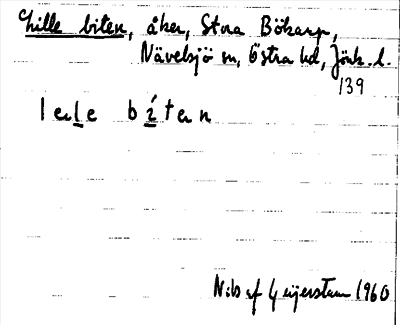 Lille biten, åker, Stora Bökarp,
Nävelsjö sn, Östra hd, Jönk. l.
139
Nils af Geijerstam 1960